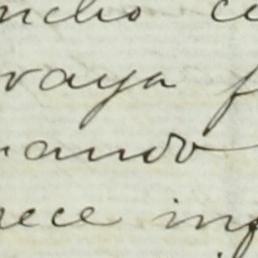 ncho c
vaya f
rando
rece inf